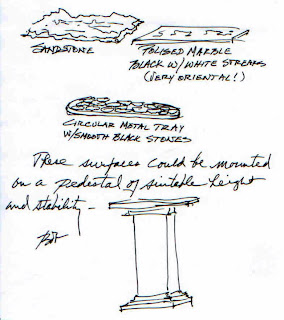 SANDSTONE
POLISED MARBLE
BLACK W/WHITE STREAKS
(VERY ORIENTAL!)
CIRCULAR METAL TRAY
W/SMOOTH BLACK STONES
These surfaces could be mounted
on a pedestal of suitable height
and stability—